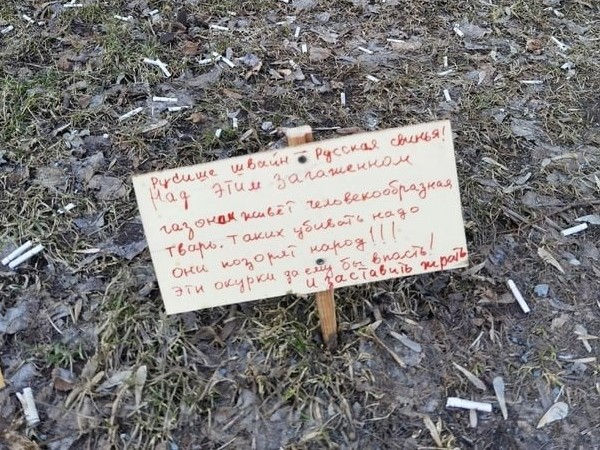 Русише швайн — Русская свинья!
Над этим загаженном
газонам живёт человекообразная
тварь. Таких убивать надо
они позорят народ!!!
Эти окурки за ему бы в пасть!
и заставить жрать